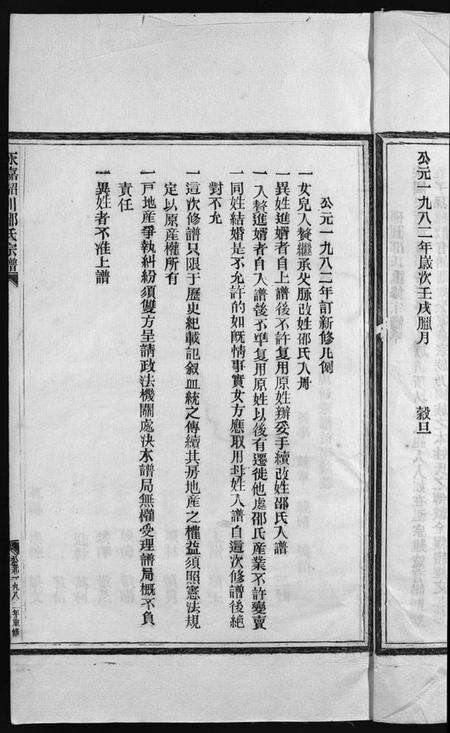 公元一九八二年歲次壬戌臘月　穀旦
公元一九八二年訂新修凡例
一女兒入贅繼承父脉改姓邵氏入周
一異姓進婿者自上譜後不許复用原姓辦妥手續改姓邵氏入譜
一入贅進婿者自入譜後不準复用原姓以後有遷徙他處邵氏產業不許變賣
一同姓結婚是不允許的如既情事實女方應取用母姓入譜自這次修譜後絶
對不允
一這次修譜只限于歷史紀載記叙血統之傳續其房地產之權益須照憲法規
定以原產權所有
一戸地產爭執糾纷須雙方呈請政法機關處決本譜局無權受理譜局概不負
責任
一異姓者不准上譜
永嘉紹川邵氏宗譜
公元一九八 年重修